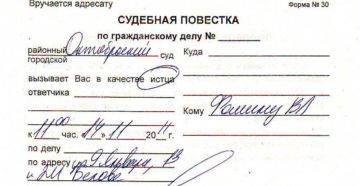 Вручается адресату
Форма № 30
СУДЕБНАЯ ПОВЕСТКА
по гражданскому делу №
районный Октябрьский суд
городской
Куда
вызывает Вас в качестве истца
ответчика
Кому Фомину ВЛ
к 11 00 час. «14» 11 2011
по делу
по адресу 9 Января, 13